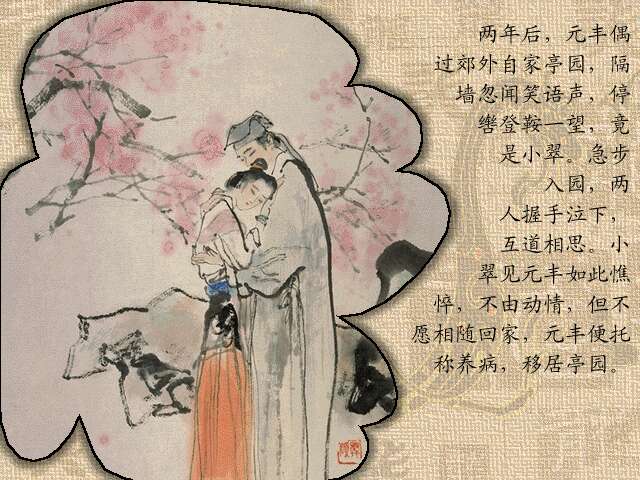 两年后，元丰偶
过郊外自家亭园，隔
墙忽闻笑语声，停
辔登鞍一望，竟
是小翠。急步
入园，两
人握手泣下，
互道相思。小
翠见元丰如此憔
悴，不由动情，但不
愿相随回家，元丰便托
称养病，移居亭园。